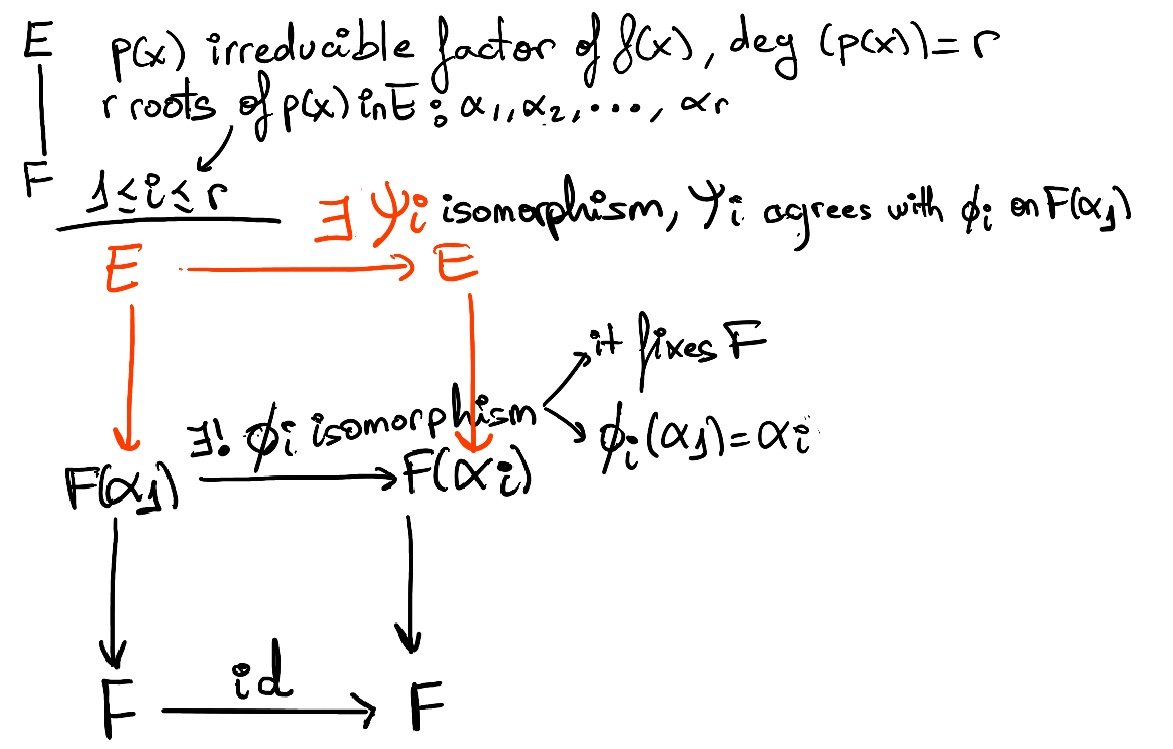 E
p(x) irreducible factor of f(x), deg (p(x)) = r
r roots of p(x) in E : α₁, α₂, ..., αr
F
1 ≤ i ≤ r
∃ ψi isomorphism, ψi agrees with ϕi on F(α₁)
E → E
it fixes F
∃! ϕi isomorphism
ϕi(α₁) = αi
F(α₁) → F(αi)
id
F → F